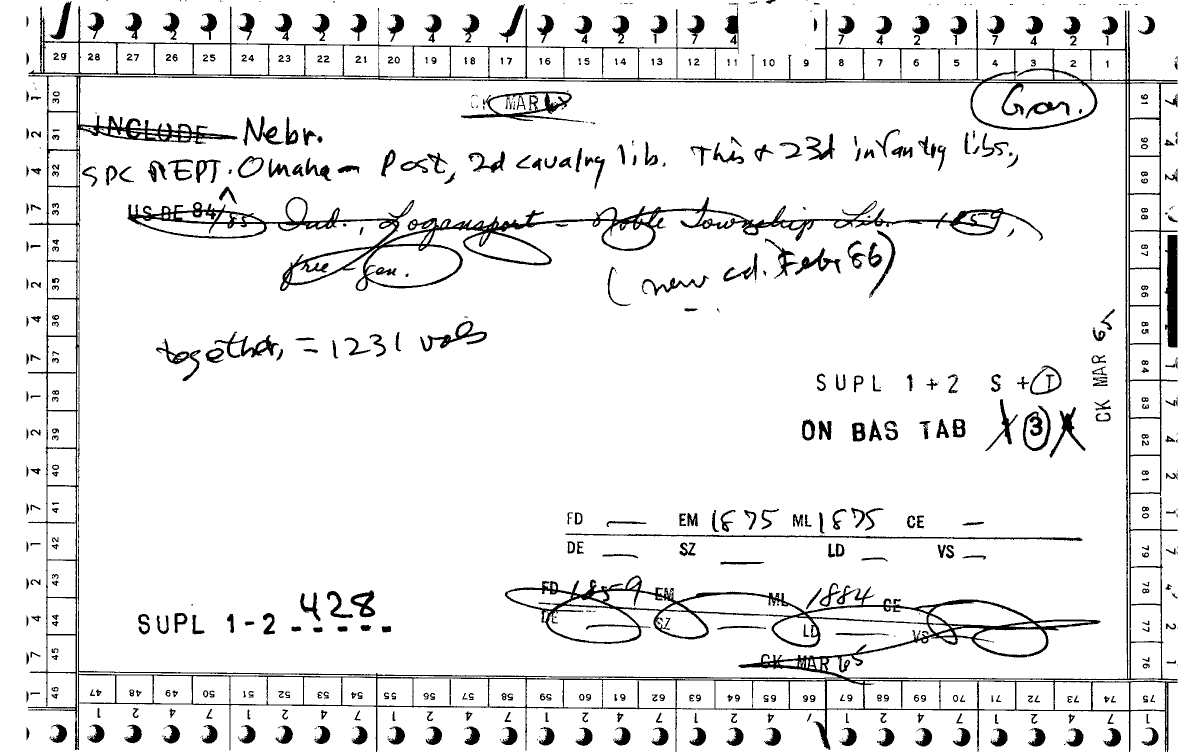 7 4 2 1 7 4 2 1 7 4 2 1 7 4 2 1 7 4 2 1 7 4 2 1
29 28 27 26 25 24 23 22 21 20 19 18 17 16 15 14 13 12 11 10 9 8 7 6 5 4 3 2 1
CK MAR 65
Gar.
INCLUDE Nebr.
SPC REPT. Omaha - Post, 2d cavalry lib. This + 23d infantry libs.,
US DE 84/85 Ind., Logansport - Noble Township Lib. - 1859,
free - gen.
(new cd. Feb. 86)
together, = 1231 vols
CK MAR 65
SUPL 1+2 S + T
ON BAS TAB 3
FD — EM 1875 ML 1875 CE —
DE — SZ — LD — VS —
FD 1859 EM — ML 1884 CE
DE — SZ — LD — VS —
SUPL 1-2 428
CK MAR 65
30 31 32 33 34 35 36 37 38 39 40 41 42 43 44 45 46
91 90 89 88 87 86 85 84 83 82 81 80 79 78 77 76 75
47 48 49 50 51 52 53 54 55 56 57 58 59 60 61 62 63 64 65 66 67 68 69 70 71 72 73 74
1 2 4 7 1 2 4 7 1 2 4 7 1 2 4 7 1 2 4 7 1 2 4 7 1 2 4 7